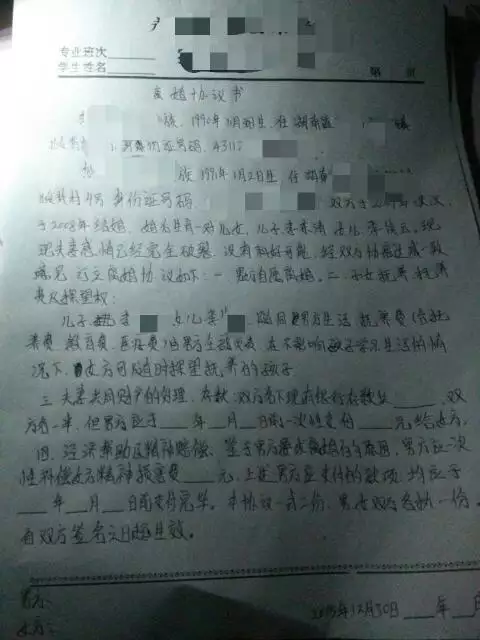 专业班次
学生姓名
第 页
离婚协议书
族, 1990年 月 日生, 住湖南省 镇
身份证号码: 43112
族 1991年1月2日生 住湖南
身份证号码 双方于
于2008年结婚, 婚后生育一对儿女, 儿子 女儿 现
夫妻感情已经完全破裂, 没有和好可能, 经双方协商达成一致
意见, 订立离婚协议如下: 一. 自愿离婚. 二. 子女抚养 抚养
费及探望权:
儿子 女儿 随同男方生活 抚养费(含托
养费 教育费 医疗费)由男方全部负责, 在不影响孩子学习生活的情
况下, 女方可随时探望抚养的孩子
三. 夫妻共同财产的处理. 存款: 双方名下现有银行存款共____, 双
方各一半, 但男方应于____年____月____日前一次性支付____元给女方.
四. 经济帮助及精神赔偿. 鉴于男方要求离婚的原因, 男方应一次
性补偿女方精神损害费____元, 上述男方应支付的款项, 均应于
____年____月____日前支付完毕. 本协议一式二份, 男女双方各执一份,
自双方签名之日起生效。
男方:
女方:
12月30日 ____年 日